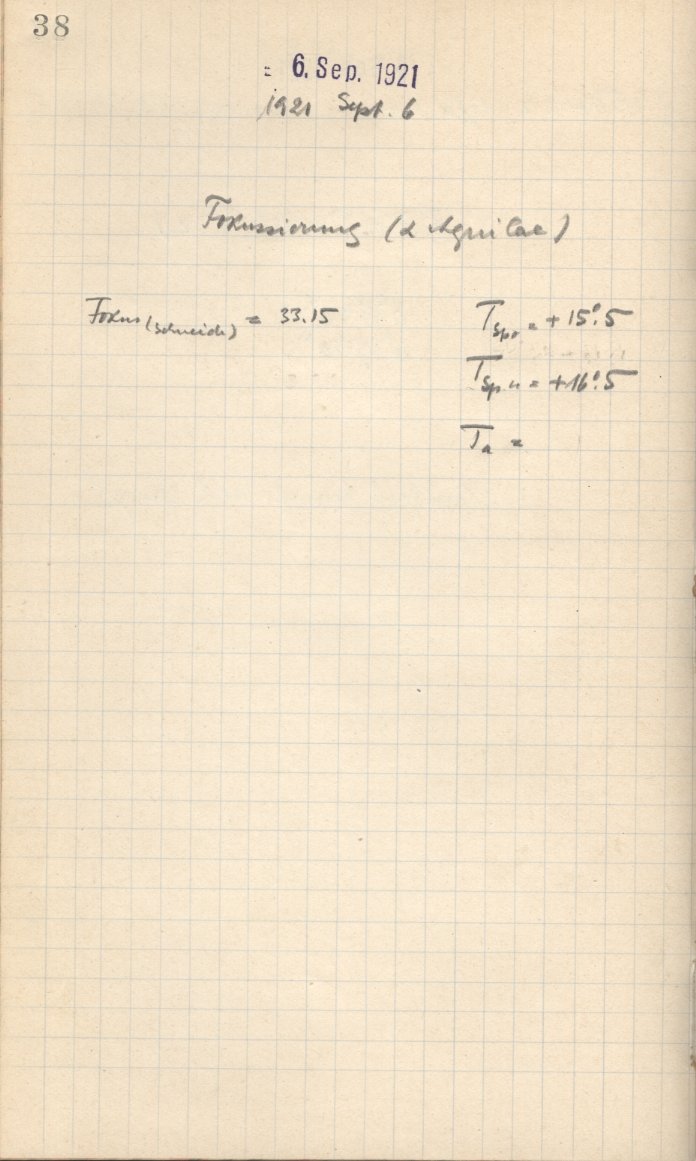 38
- 6. Sep. 1921
1921 Sept. 6
Fokussierung (α Aquilae)
Fokus (Schneide) = 33.15
T Sp o = + 15°.5
T Sp u = + 16°.5
T a =